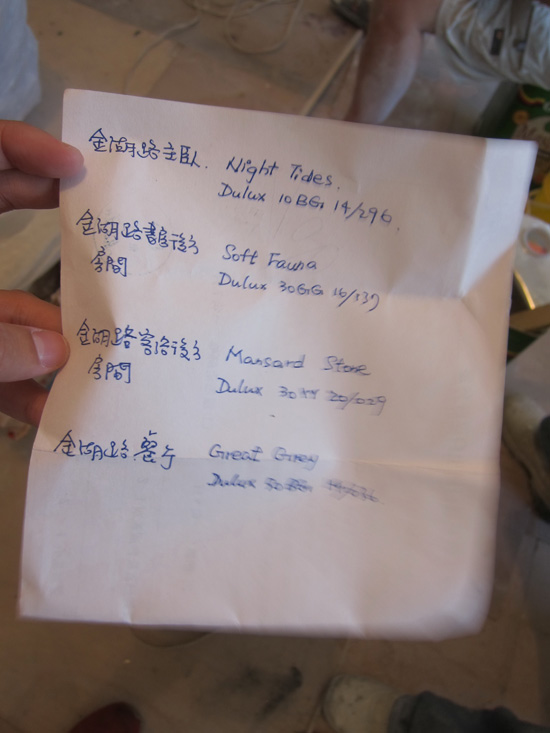 金湖路主臥. Night Tides.
Dulux 10BG 14/296.
金湖路書房後方
房間
Soft Fauna
Dulux 30GG 16/137
金湖路客浴後方
房間
Mansard Stone
Dulux 30YY 20/029
金湖路餐厅 Great Grey
Dulux